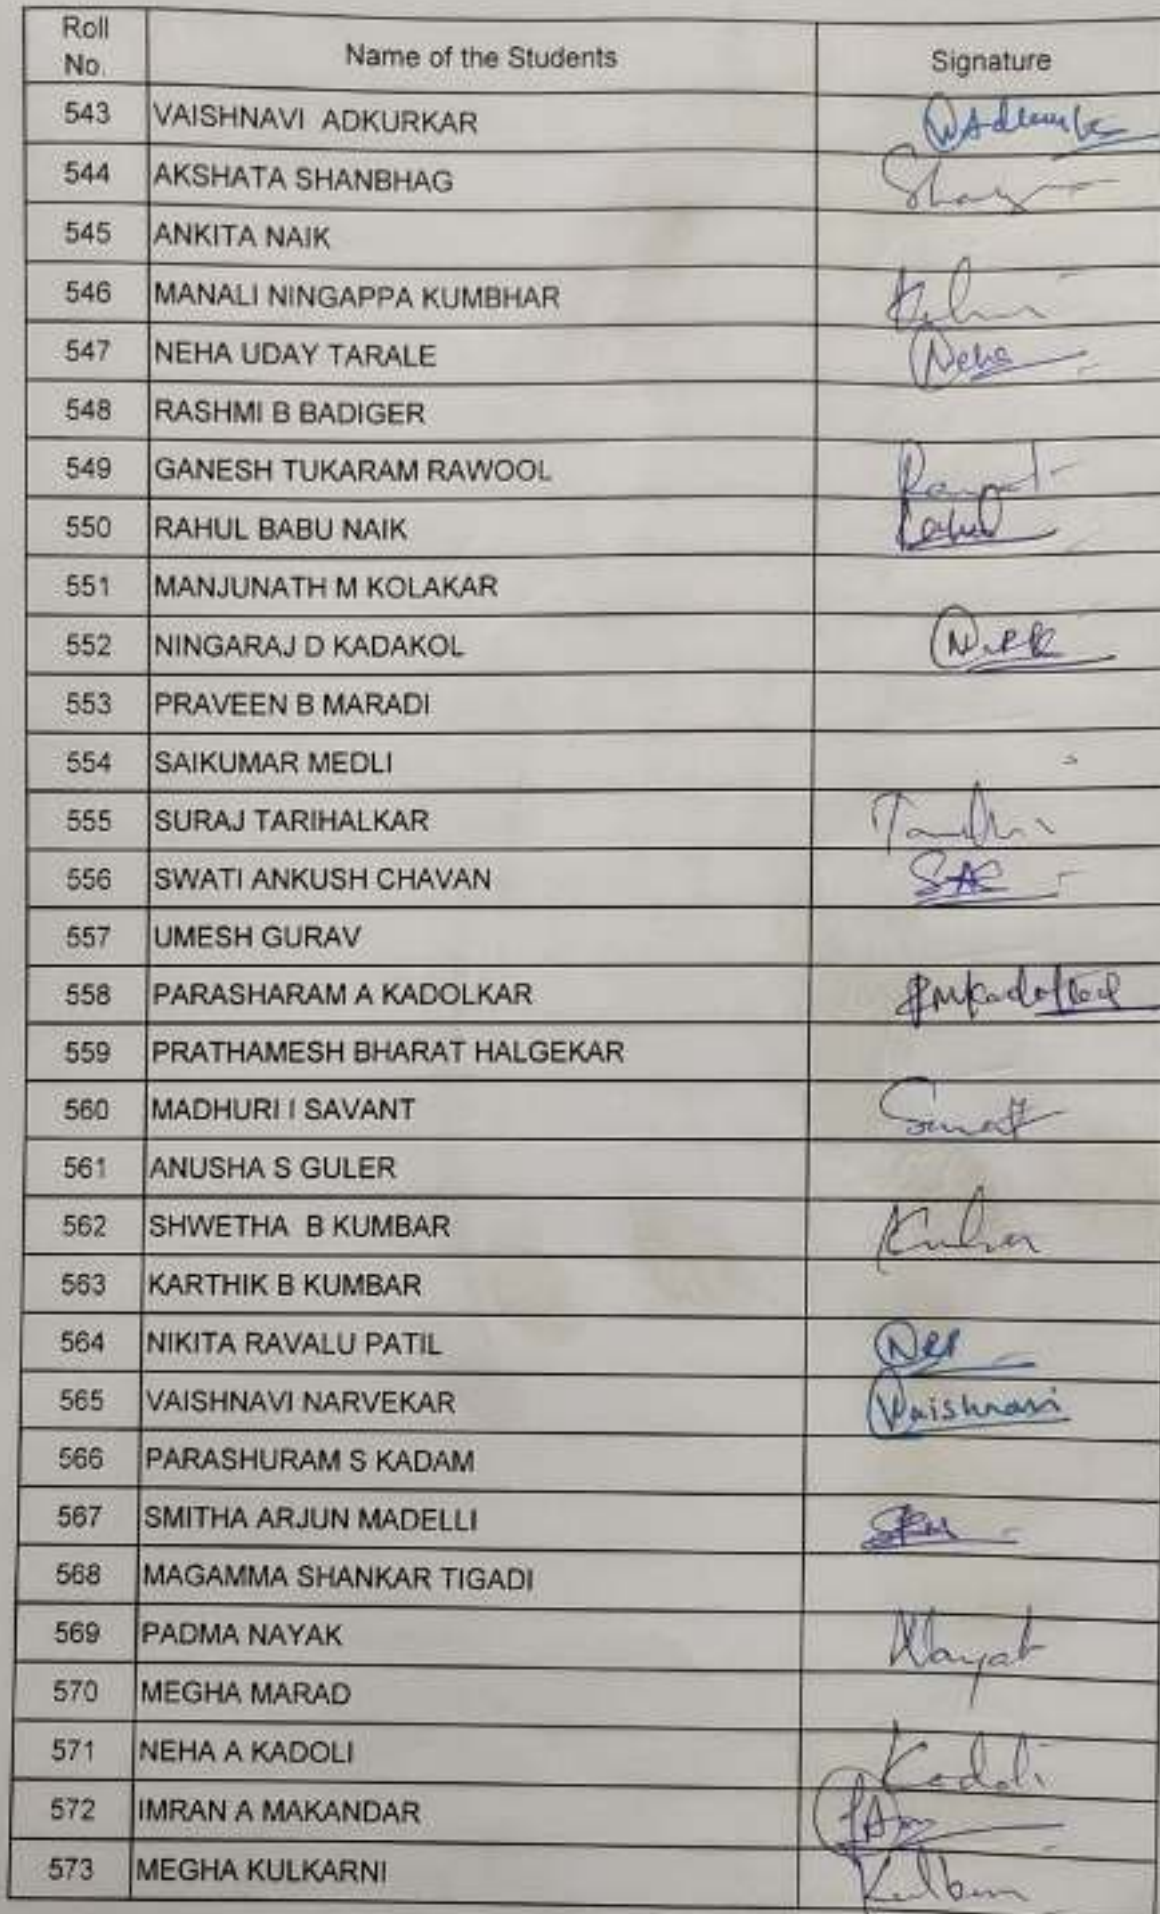 Roll No. Name of the Students Signature
543 VAISHNAVI ADKURKAR
544 AKSHATA SHANBHAG
545 ANKITA NAIK
546 MANALI NINGAPPA KUMBHAR
547 NEHA UDAY TARALE Neha
548 RASHMI B BADIGER
549 GANESH TUKARAM RAWOOL
550 RAHUL BABU NAIK Rahul
551 MANJUNATH M KOLAKAR
552 NINGARAJ D KADAKOL
553 PRAVEEN B MARADI
554 SAIKUMAR MEDLI
555 SURAJ TARIHALKAR
556 SWATI ANKUSH CHAVAN SAC
557 UMESH GURAV
558 PARASHARAM A KADOLKAR
559 PRATHAMESH BHARAT HALGEKAR
560 MADHURI I SAVANT
561 ANUSHA S GULER
562 SHWETHA B KUMBAR
563 KARTHIK B KUMBAR
564 NIKITA RAVALU PATIL
565 VAISHNAVI NARVEKAR Vaishnavi
566 PARASHURAM S KADAM
567 SMITHA ARJUN MADELLI
568 MAGAMMA SHANKAR TIGADI
569 PADMA NAYAK Nayak
570 MEGHA MARAD
571 NEHA A KADOLI Kadoli
572 IMRAN A MAKANDAR
573 MEGHA KULKARNI